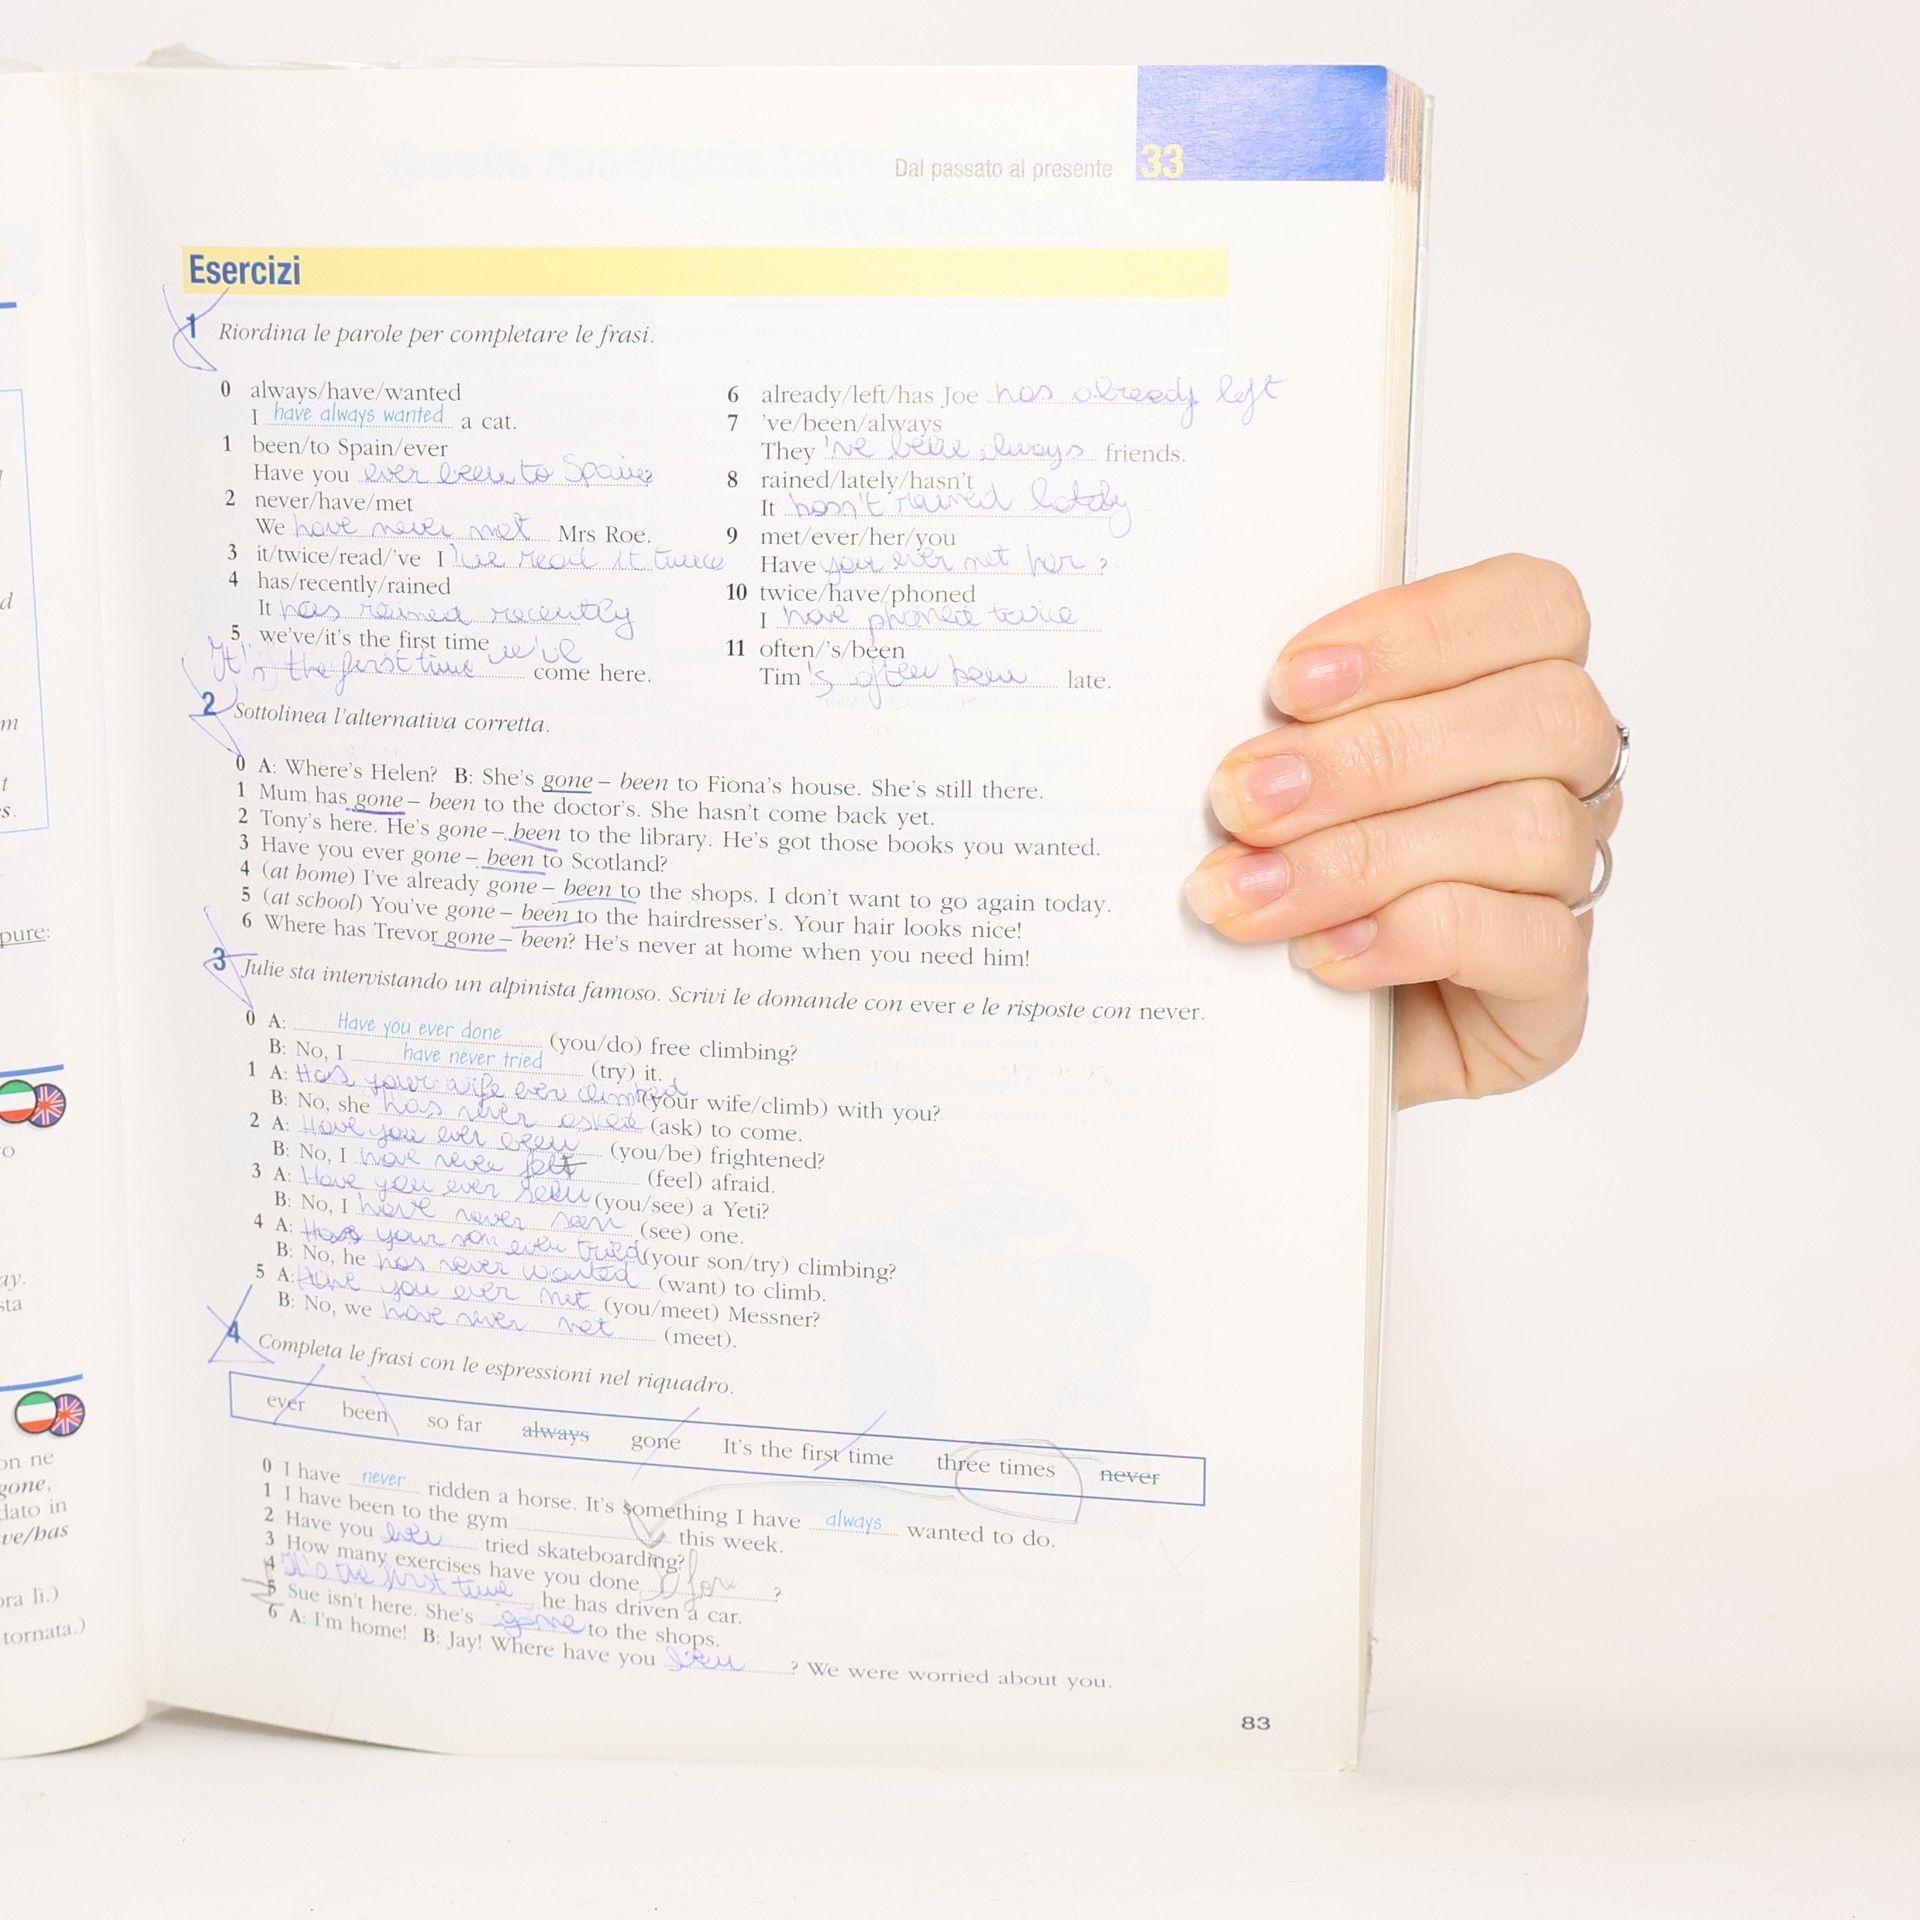 Dal passato al presente 33
Esercizi
1 Riordina le parole per completare le frasi.
0 always/have/wanted
I have always wanted a cat.
1 been/to Spain/ever
Have you ever been to Spain?
2 never/have/met
We have never met Mrs Roe.
3 it/twice/read/'ve I 've read it twice
4 has/recently/rained
It has rained recently
5 we've/it's the first time
It's the first time we've come here.
6 already/left/has Joe has already left
7 've/been/always
They 've been always friends.
8 rained/lately/hasn't
It hasn't rained lately
9 met/ever/her/you
Have you ever met her ?
10 twice/have/phoned
I have phoned twice
11 often/'s/been
Tim 's often been late.
2 Sottolinea l'alternativa corretta.
0 A: Where's Helen? B: She's gone – been to Fiona's house. She's still there.
1 Mum has gone – been to the doctor's. She hasn't come back yet.
2 Tony's here. He's gone – been to the library. He's got those books you wanted.
3 Have you ever gone – been to Scotland?
4 (at home) I've already gone – been to the shops. I don't want to go again today.
5 (at school) You've gone – been to the hairdresser's. Your hair looks nice!
6 Where has Trevor gone – been? He's never at home when you need him!
3 Julie sta intervistando un alpinista famoso. Scrivi le domande con ever e le risposte con never.
0 A: Have you ever done (you/do) free climbing?
B: No, I have never tried (try) it.
1 A: Has your wife ever climbed (your wife/climb) with you?
B: No, she has never asked (ask) to come.
2 A: Have you ever been (you/be) frightened?
B: No, I have never felt (feel) afraid.
3 A: Have you ever seen (you/see) a Yeti?
B: No, I have never seen (see) one.
4 A: Has your son ever tried (your son/try) climbing?
B: No, he has never wanted (want) to climb.
5 A: Have you ever met (you/meet) Messner?
B: No, we have never met (meet).
4 Completa le frasi con le espressioni nel riquadro.
ever been so far always gone It's the first time three times never
0 I have never ridden a horse. It's something I have always wanted to do.
1 I have been to the gym this week.
2 Have you ever tried skateboarding?
3 How many exercises have you done so far ?
4 It's the first time he has driven a car.
5 Sue isn't here. She's gone to the shops.
6 A: I'm home! B: Jay! Where have you been ? We were worried about you.
83
pure:
on ne
gone,
dato in
ve/has
ora lì.)
tornata.)